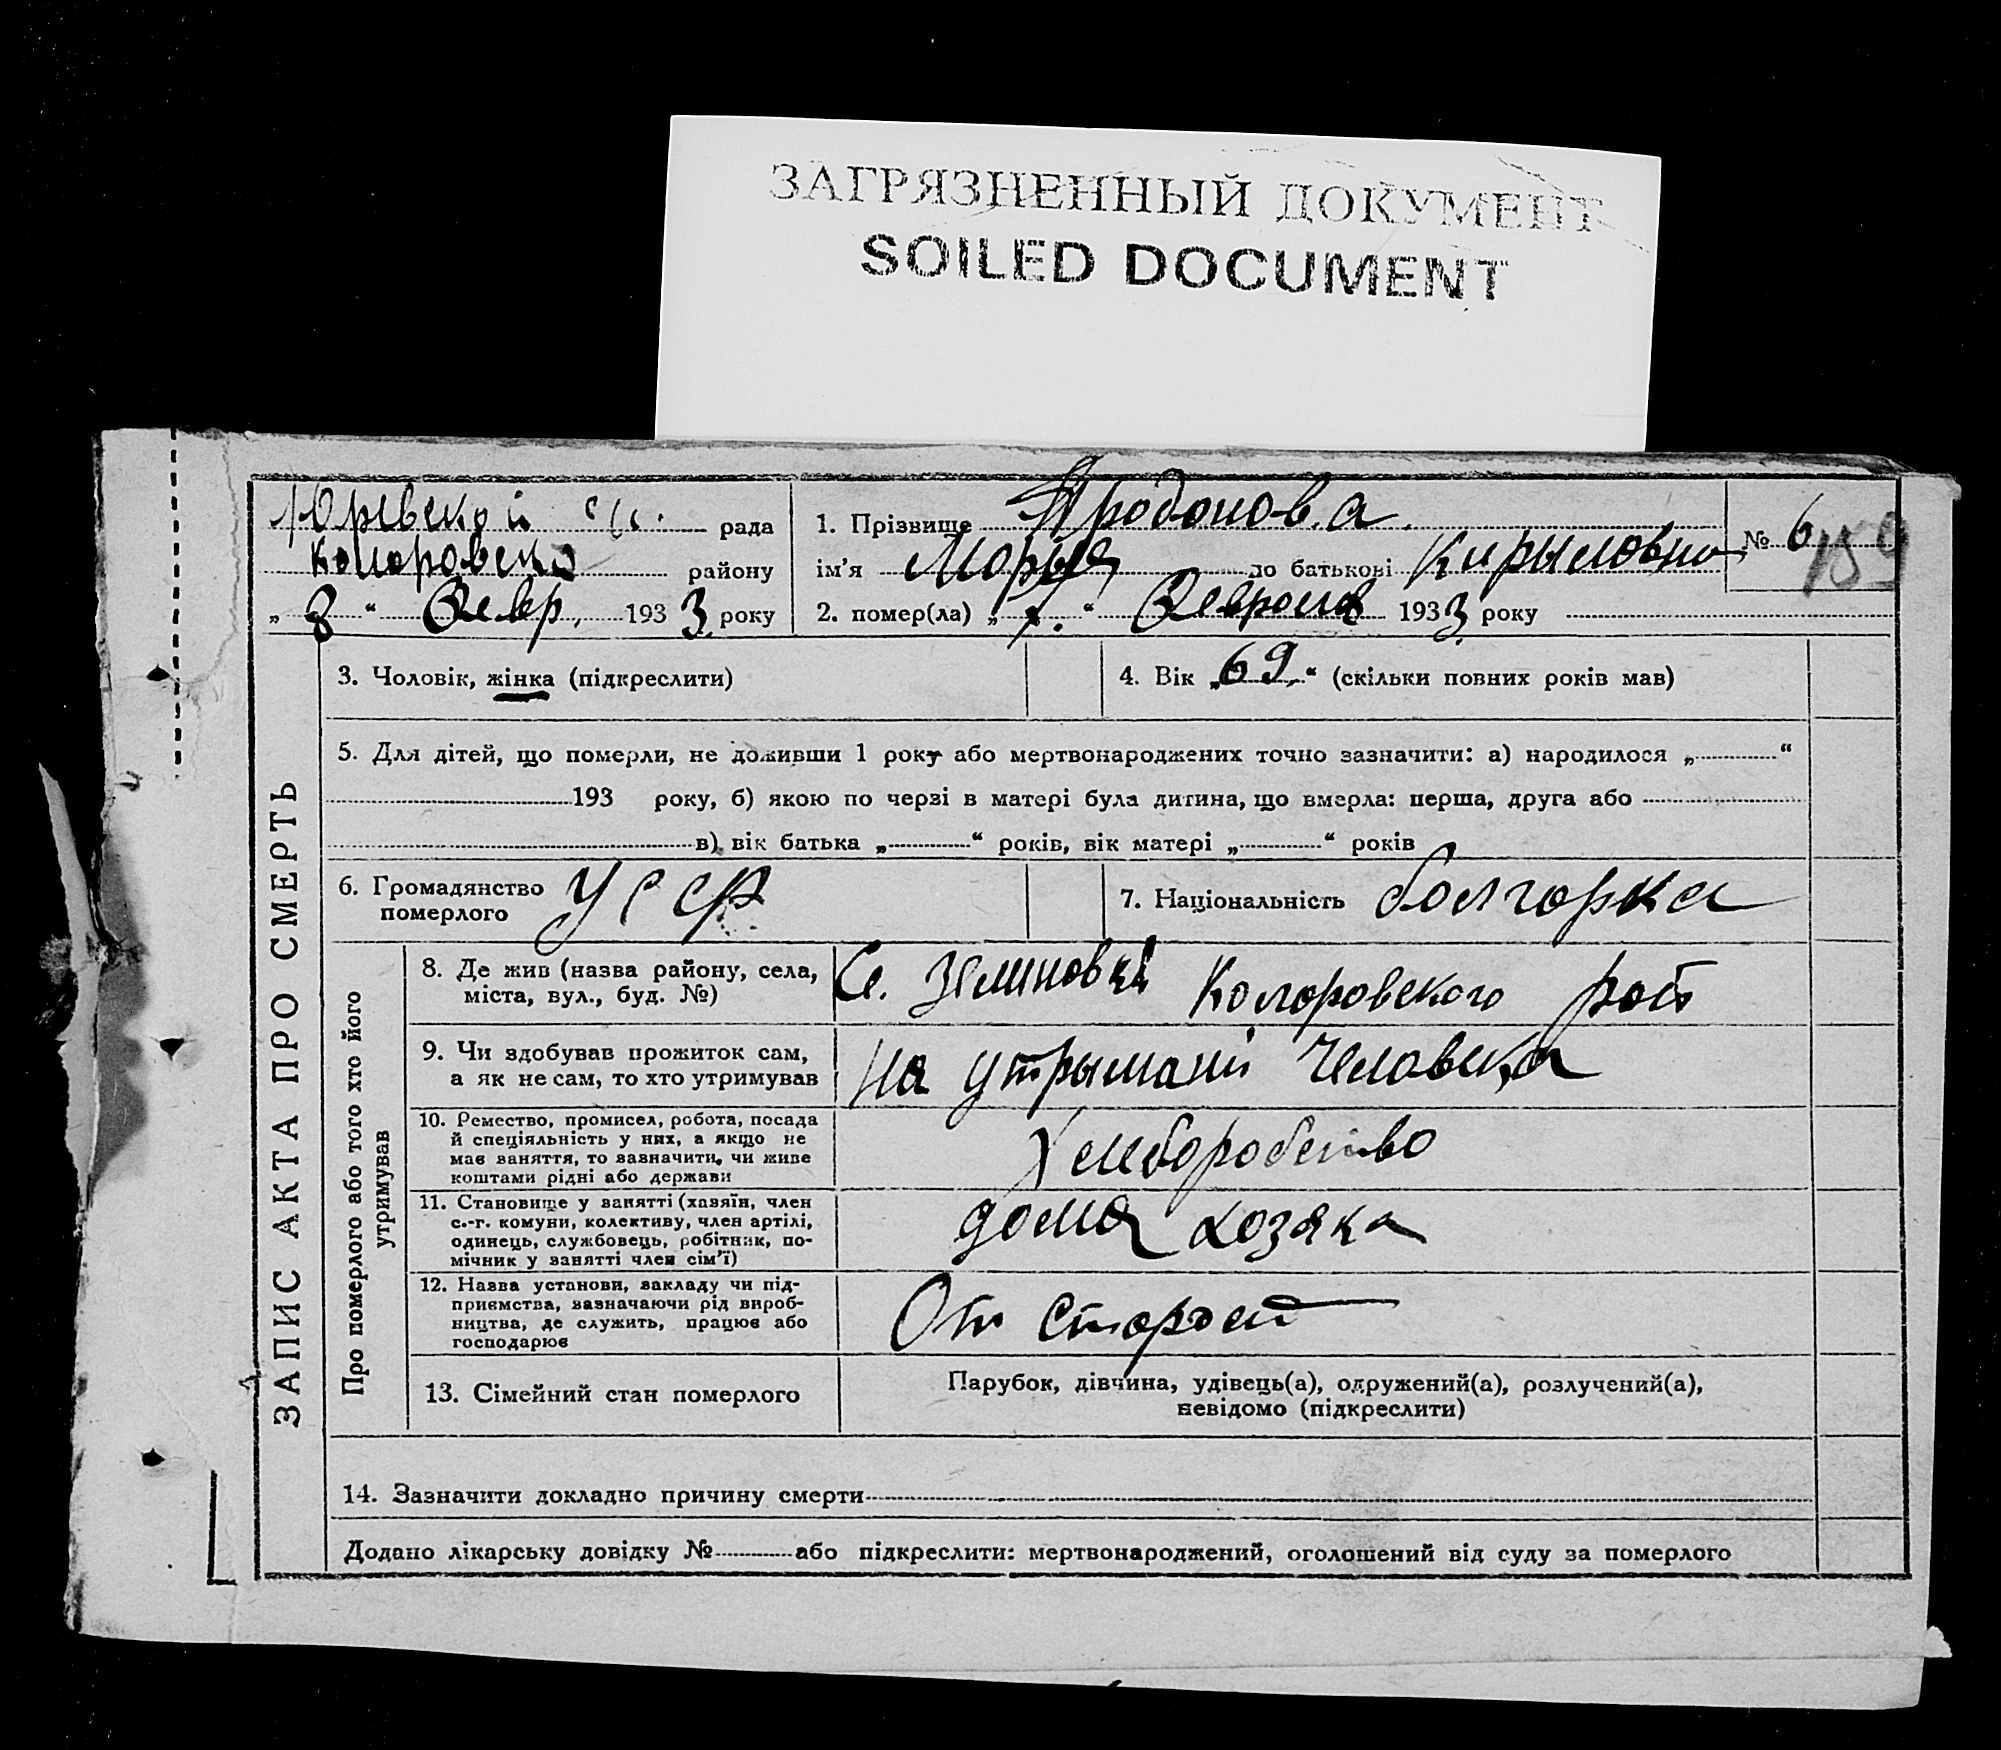 ЗАГРЯЗНЕННЫЙ ДОКУМЕНТ
SOILED DOCUMENT
Юрівской с/с. рада
району
„ 8 “ Февр, 1933 року
1. Прізвище Продонова.
ім’я Морыя по батькові Кирыловно
№ 6
159
2. помер(ла) „ 7. “ Февроля 1933 року
ЗАПИС АКТА ПРО СМЕРТЬ
3. Чоловік, жінка (підкреслити)
4. Вік „69“ (скільки повних років мав)
5. Для дітей, що померли, не доживши 1 року або мертвонароджених точно зазначити: а) народилося „ “
193 року, б) якою по черзі в матері була дитина, що вмерла: перша, друга або
в) вік батька „ “ років, вік матері „ “ років
6. Громадянство
померлого УССР
7. Національність болгорка
Про померлого або того хто його
утримував
8. Де жив (назва району, села,
міста, вул., буд. №)
Коларовского
9. Чи здобував прожиток сам,
а як не сам, то хто утримував
на утрымані Человека
10. Ремество, промисел, робота, посада
й спеціяльність у них, а якщо не
має заняття, то зазначити, чи живе
коштами рідні або держави
11. Становище у занятті (хазяїн, член
с.-г. комуни, колективу, член артілі,
одинець, службовець, робітник, по-
мічник у занятті член сім’ї)
дома хозяка
12. Назва установи, закладу чи під-
приємства, зазначаючи рід вироб-
ництва, де служить, працює або
господарює
От
13. Сімейний стан померлого
Парубок, дівчина, удівець(а), одружений(а), розлучений(а),
невідомо (підкреслити)
14. Зазначити докладно причину смерти
Додано лікарську довідку № або підкреслити: мертвонароджений, оголошений від суду за померлого